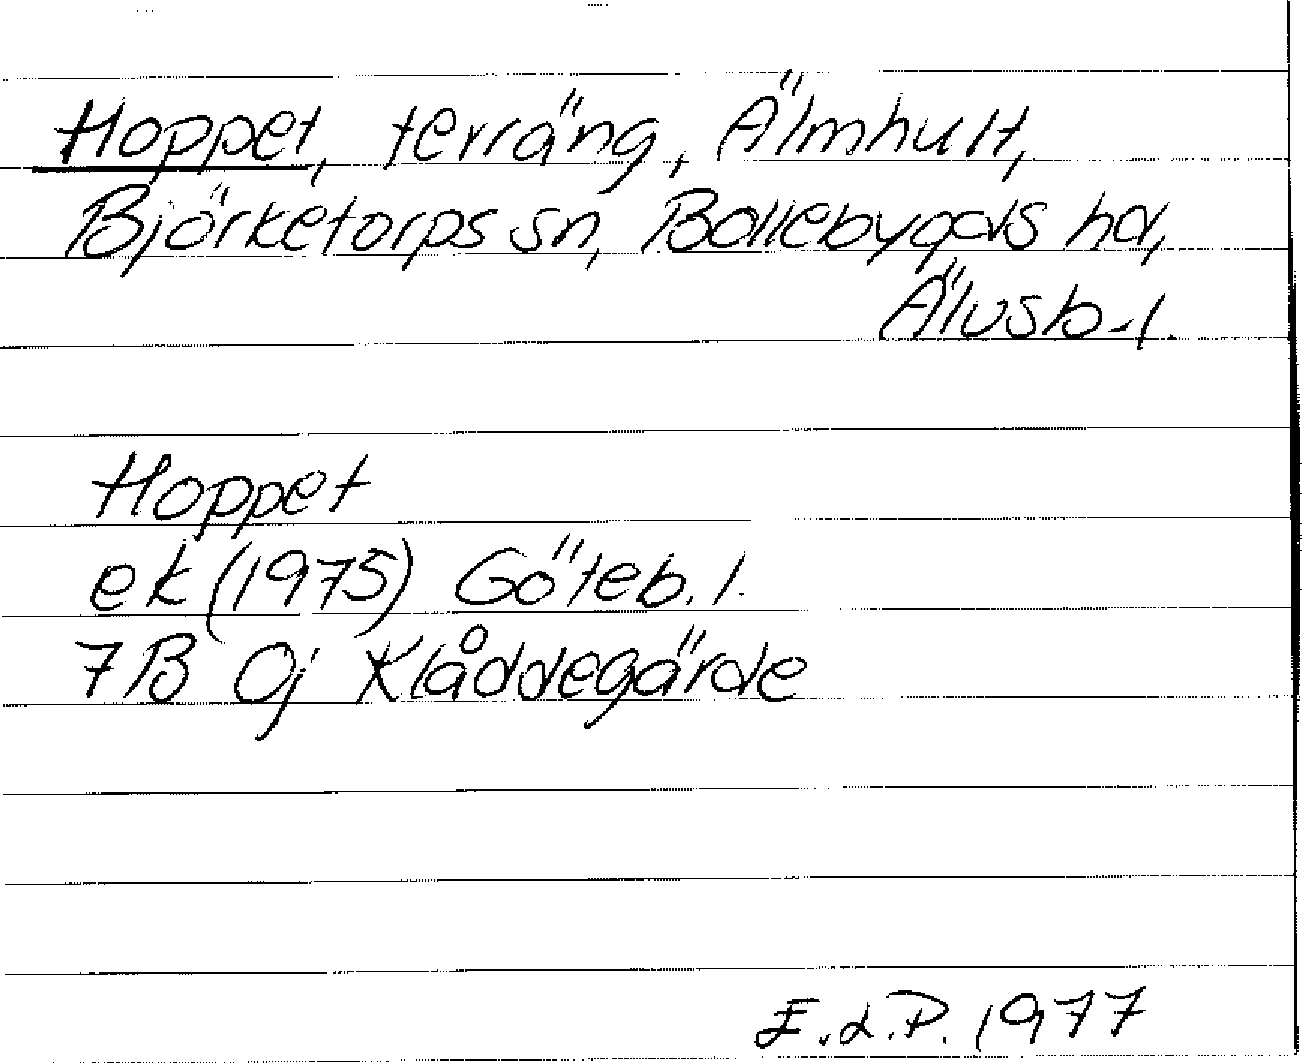 Hoppet, terräng, Älmhult,
Björketorps sn, Bollebygds hd,
Älvsb. l.
Hoppet
ek (1975) Göteb. l.
7B 0j Klåddegärde
E.d.P. 1977